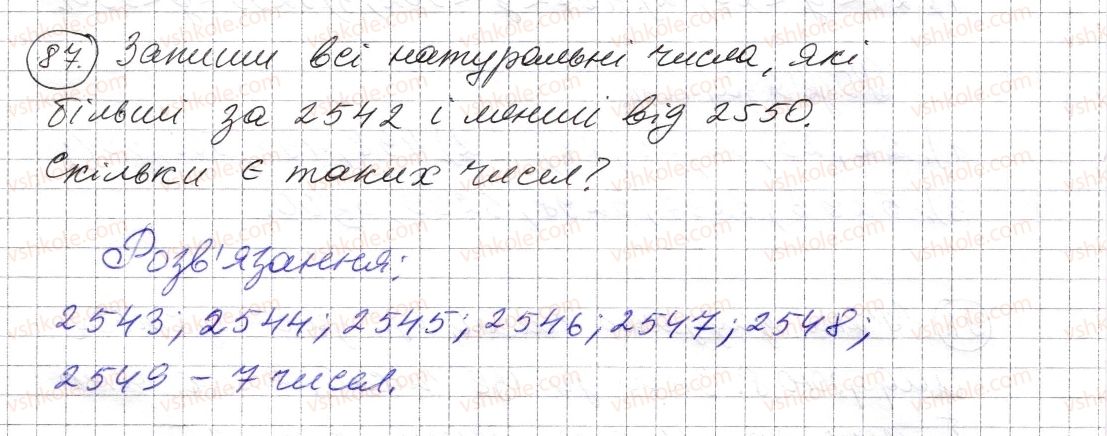 87. Запиши всі натуральні числа, які
більші за 2542 і менші від 2550.
Скільки є таких чисел?
Розв'язання:
2543; 2544; 2545; 2546; 2547; 2548;
2549 - 7 чисел.